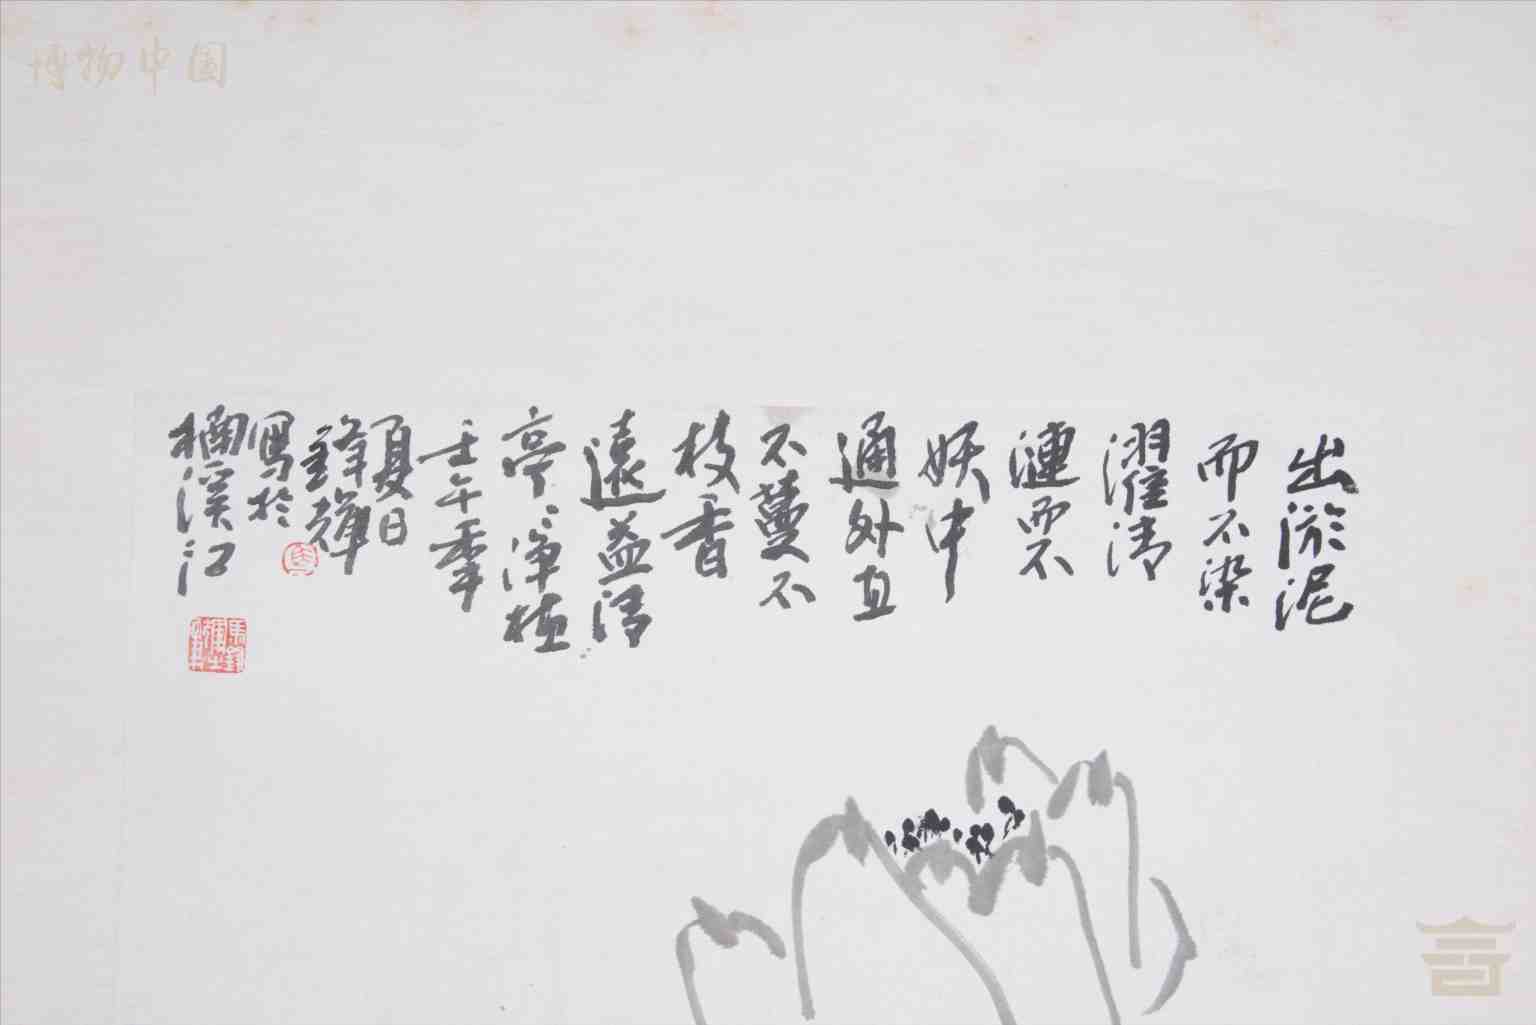 博物中国
出淤泥
而不染
濯清
漣而不
妖中
通外直
不蔓不
枝香
遠益清
亭〻淨植
壬午季
夏日
鋒輝
寫於
楠溪江